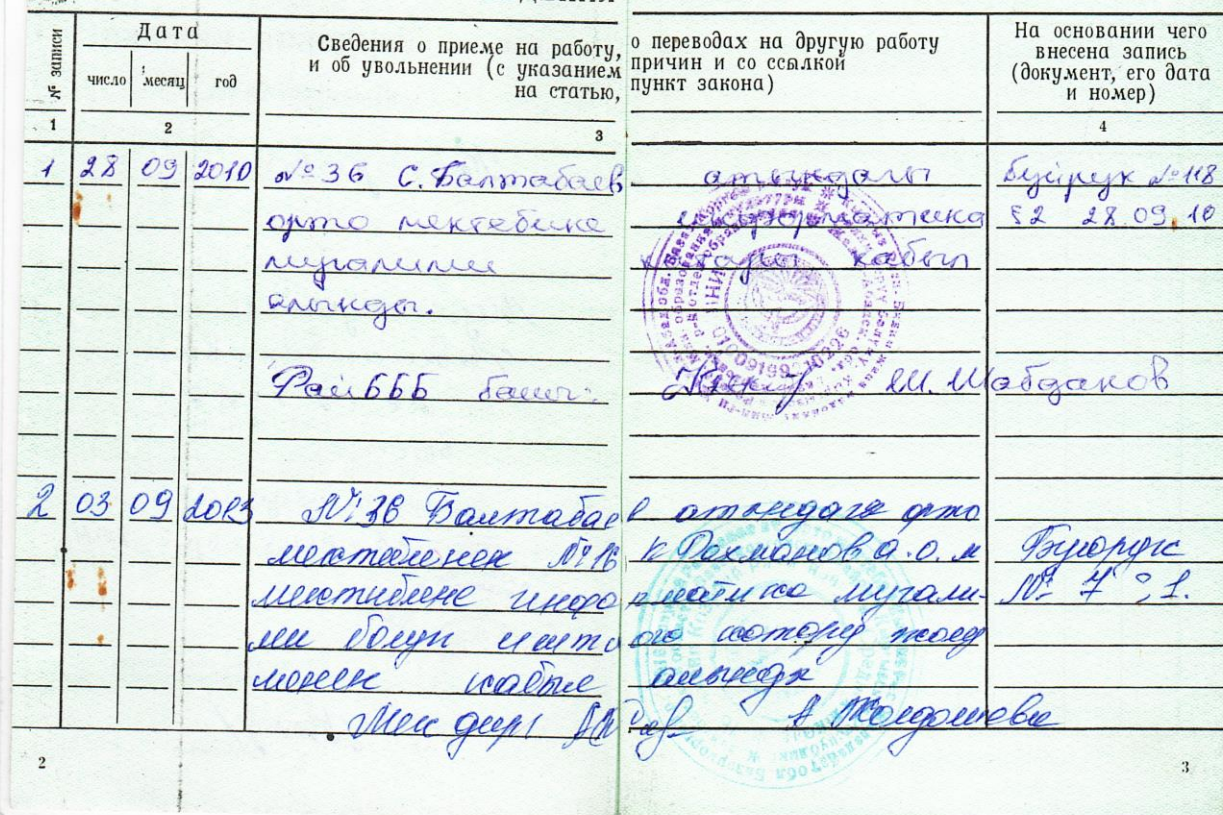 № записи
Дата
число
месяц
год
Сведения о приеме на работу, о переводах на другую работу
и об увольнении (с указанием причин и со ссылкой
на статью, пункт закона)
На основании чего
внесена запись
(документ, его дата
и номер)
1 2 3 4
1 28 09 2010 №36 С. Балтабаев атындагы Буйрук №118
орто мектебине информатика §2 28.09.10
мугалими кабыл
алынды.
Рай БББ башчы: Ш. Шабданов
2 03 09 2013 №36 Балтабаев атындагы орто
№16 Рахманов а.о.м Буюрук
мектибине информатика мугали- № 7 :1.
ми болуп которуу жолу
менен кабыл алынды
Мек дир А Жолдошева
2
3